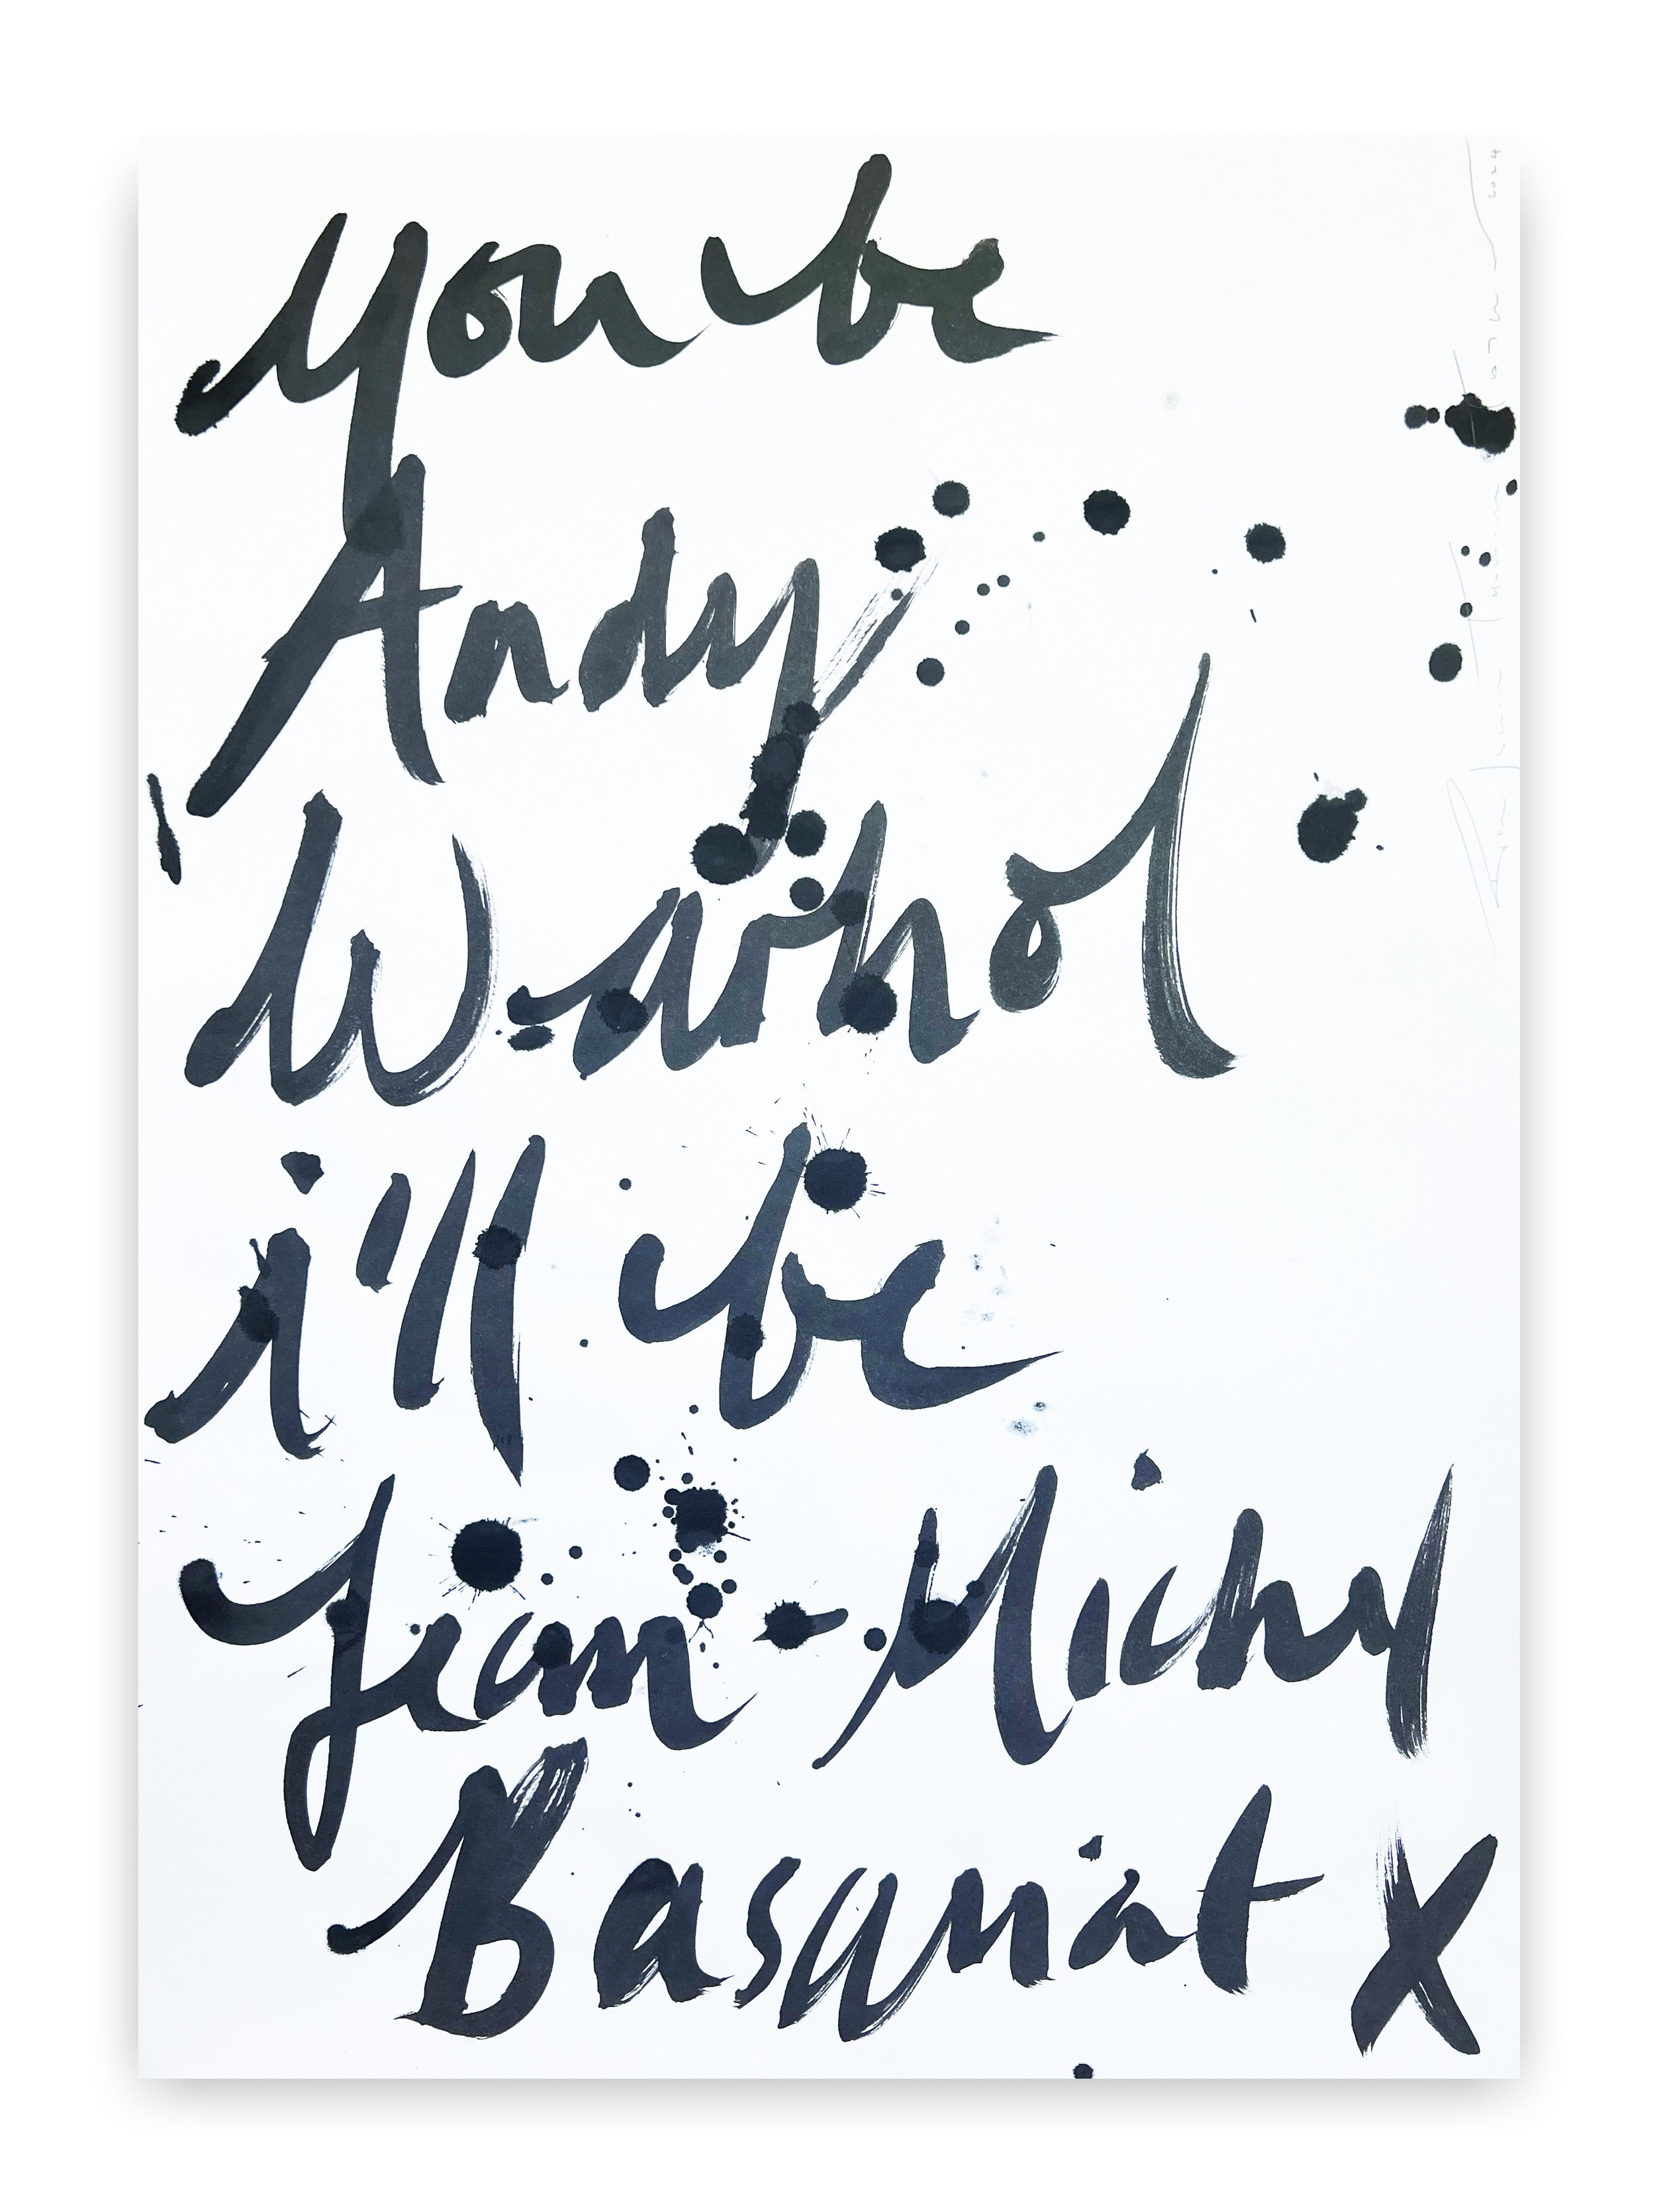 you be
Andy
Warhol
i'll be
Jean-Michel
Basquiat x
2024